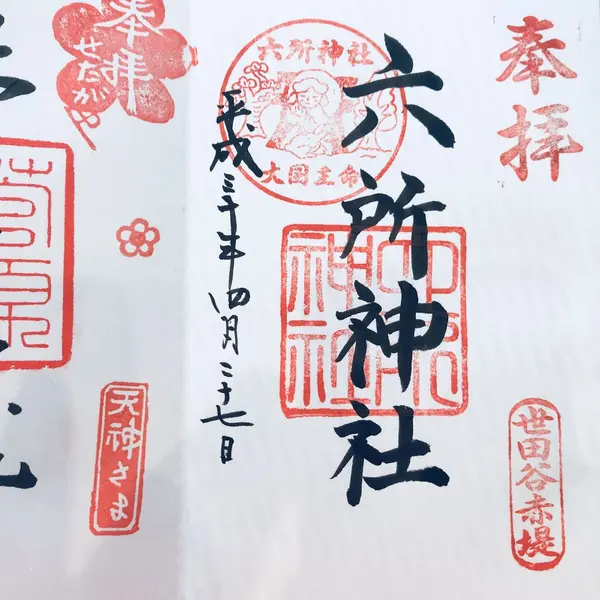 奉拝
世田谷赤堤
六所神社
六所神社
大国主命
六所神社
平成三十年四月二十七日
奉拝
せたがや
天神さま